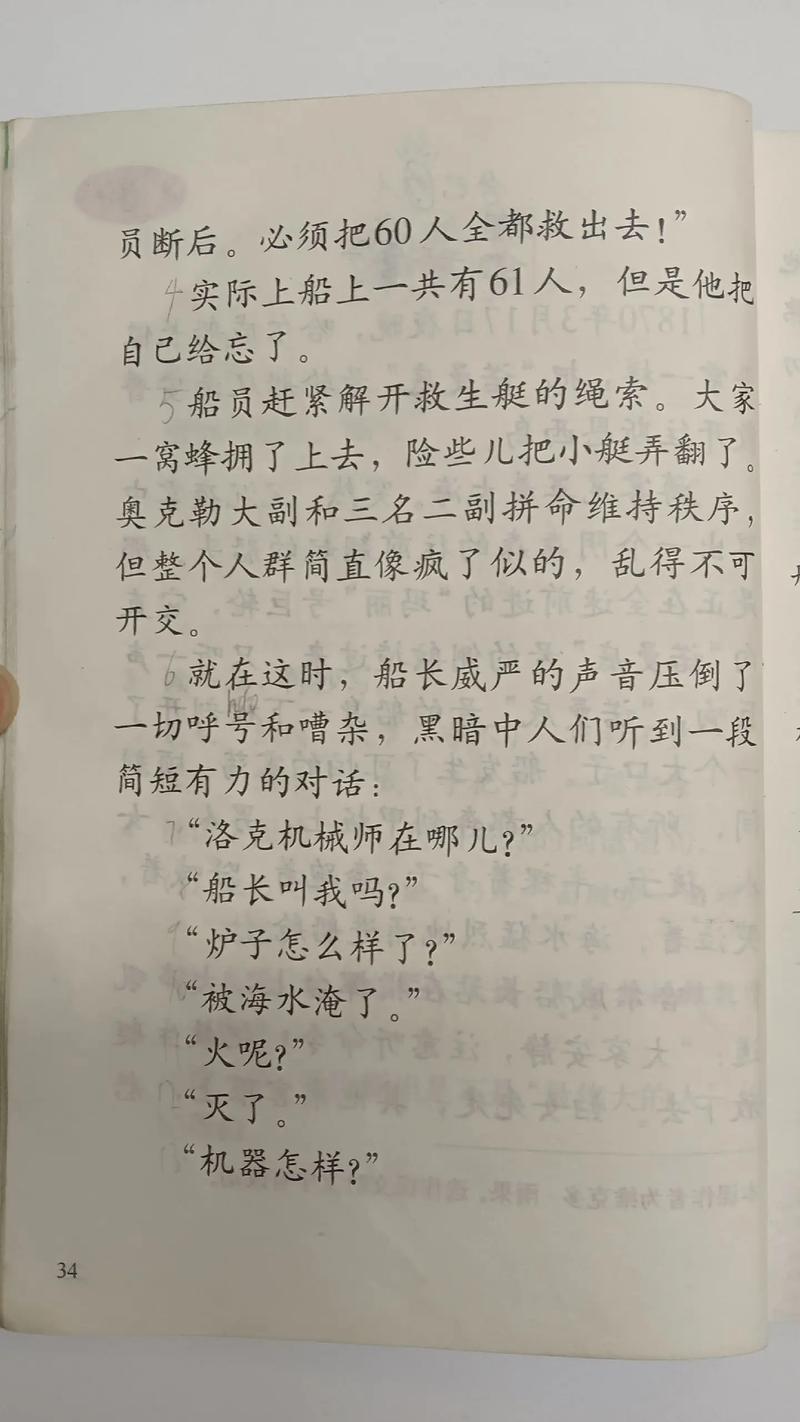 员断后。必须把60人全都救出去！”
4 实际上船上一共有61人，但是他把
自己给忘了。
5 船员赶紧解开救生艇的绳索。大家
一窝蜂拥了上去，险些儿把小艇弄翻了。
奥克勒大副和三名二副拼命维持秩序，
但整个人群简直像疯了似的，乱得不可
开交。
6 就在这时，船长威严的声音压倒了
háo
一切呼号和嘈杂，黑暗中人们听到一段
简短有力的对话：
7 “洛克机械师在哪儿？”
“船长叫我吗？”
“炉子怎么样了？”
“被海水淹了。”
“火呢？”
“灭了。”
“机器怎样？”
34